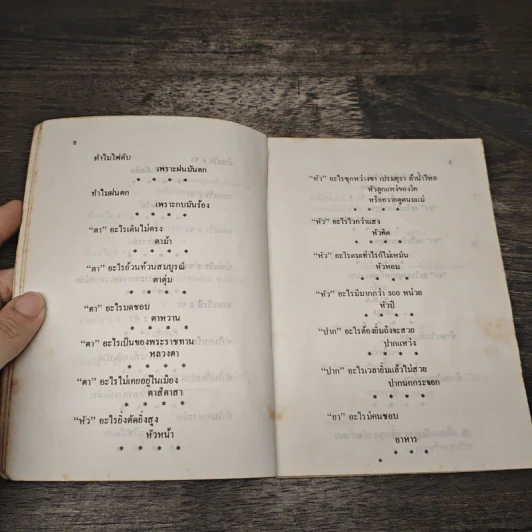 6
ทำไมไฟดับ
เพราะฝนมันตก
* * * *
ทำไมฝนตก
เพราะกบมันร้อง
* * * *
“ตา” อะไรเดินไม่ตรง
ตาม้า
* * * *
“ตา” อะไรอ้วนท้วนสมบูรณ์
ตาตุ่ม
* * * *
“ตา” อะไรมดชอบ
ตาหวาน
* * * *
“ตา” อะไรเป็นของพระราชทาน
หลวงตา
* * * *
“ตา” อะไรไม่เคยอยู่ในเมือง
ตาสีตาสา
* * * *
“หัว” อะไรยิ่งตัดยิ่งสูง
หัวหน้า
* * * *
7
“หัว” อะไรซุกหว่างขา เปรมอุรา ถ้าน้ำไหล
หัวลูกแหง่ของใคร
หรือควายดูดนมแม่
* * * *
“หัว” อะไรไวกว่าแสง
หัวคิด
* * * *
“หัว” อะไรดมเท่าไรก็ไม่เหม็น
หัวหอม
* * * *
“หัว” อะไรมีมากกว่า 300 หน่วย
หัวปี
* * * *
“ปาก” อะไรต้องยิ้มถึงจะสวย
ปากแหว่ง
* * * *
“ปาก” อะไรเวลายิ้มแล้วไม่สวย
ปากนกกระจอก
* * * *
“อา” อะไรมีคนชอบ
อาหาร
* * * *